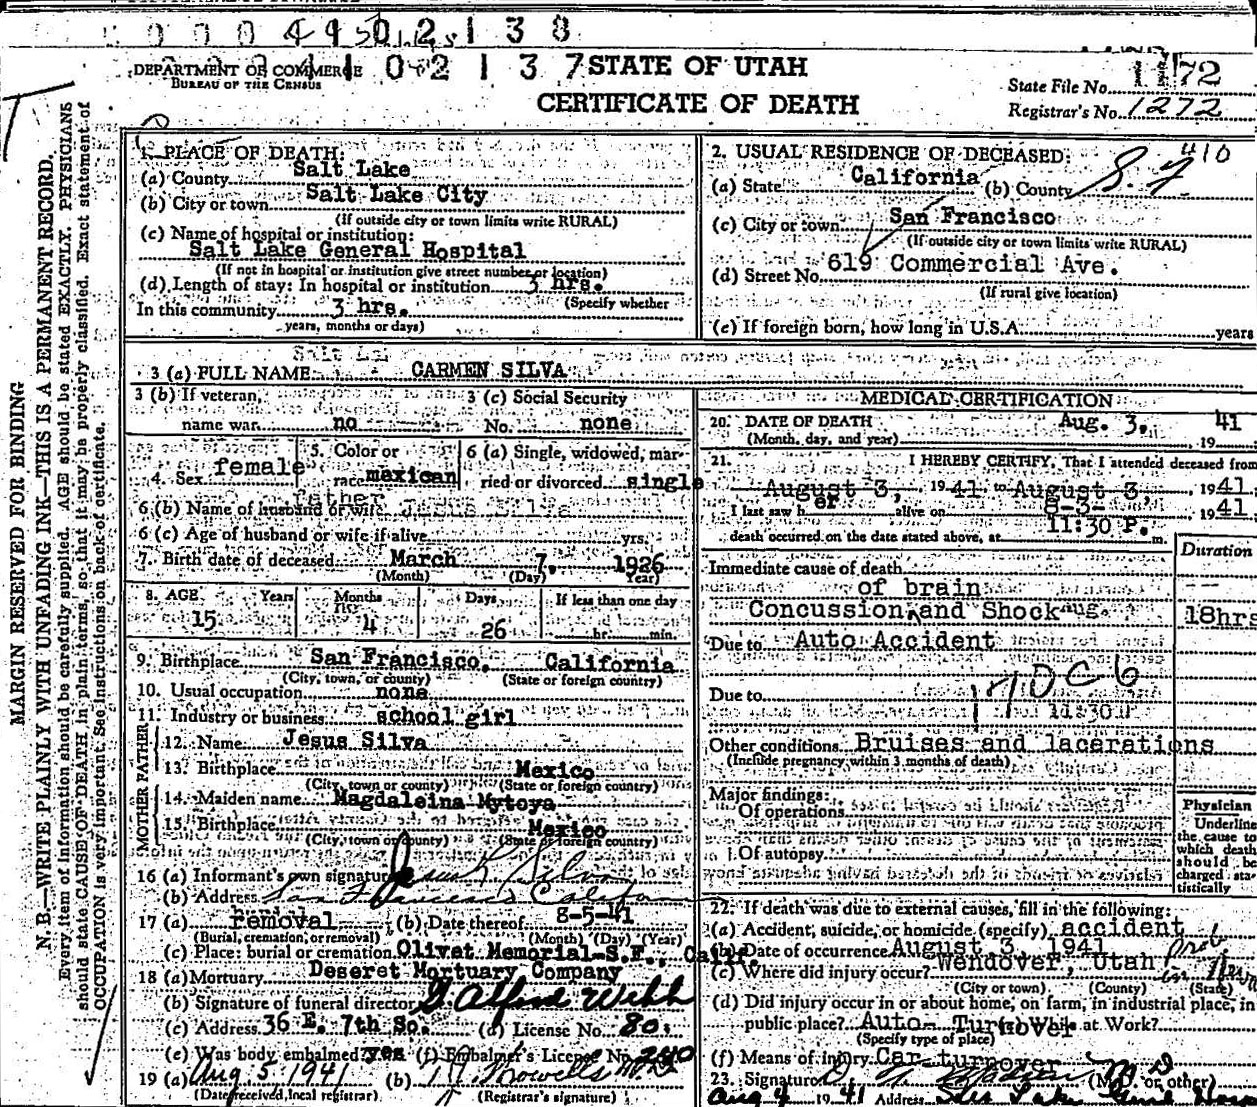 0 0 0 4 4 9 0 2 1 3 8
4 1 0 2 1 3 7
DEPARTMENT OF COMMERCE
BUREAU OF THE CENSUS
STATE OF UTAH
CERTIFICATE OF DEATH
State File No. 1172
Registrar's No. 1272
MARGIN RESERVED FOR BINDING
N. B.—WRITE PLAINLY WITH UNFADING INK—THIS IS A PERMANENT RECORD.
Every item of information should be carefully supplied. AGE should be stated EXACTLY. PHYSICIANS
should state CAUSE OF DEATH in plain terms, so that it may be properly classified. Exact statement of
OCCUPATION is very important. See instructions on back of certificate.
1. PLACE OF DEATH:
(a) County Salt Lake
(b) City or town Salt Lake City
(If outside city or town limits write RURAL)
(c) Name of hospital or institution:
Salt Lake General Hospital
(If not in hospital or institution give street number or location)
(d) Length of stay: In hospital or institution 3 hrs.
(Specify whether
In this community 3 hrs.
years, months or days)
2. USUAL RESIDENCE OF DECEASED: 410
(a) State California (b) County S. F.
(c) City or town San Francisco
(If outside city or town limits write RURAL)
(d) Street No. 619 Commercial Ave.
(If rural give location)
(e) If foreign born, how long in U.S.A. years
3 (a) FULL NAME CARMEN SILVA
3 (b) If veteran, name war no
3 (c) Social Security No. none
4. Sex female
5. Color or race mexican
6 (a) Single, widowed, married or divorced single
father
6 (b) Name of husband or wife Jesus Silva
6 (c) Age of husband or wife if alive yrs.
7. Birth date of deceased March 7, 1926
(Month) (Day) (Year)
8. AGE Years Months Days If less than one day
15 4 26 hr. min.
9. Birthplace San Francisco, California
(City, town, or county) (State or foreign country)
10. Usual occupation none
11. Industry or business school girl
FATHER
12. Name Jesus Silva
13. Birthplace Mexico
(City, town or county) (State or foreign country)
MOTHER
14. Maiden name Magdaleina Mytoya
15. Birthplace Mexico
(City, town or county) (State or foreign country)
16 (a) Informant's own signature Silva
(b) Address San Francisco California
17 (a) removal (b) Date thereof 8-5-41
(Burial, cremation, or removal) (Month) (Day) (Year)
(c) Place: burial or cremation Olivet Memorial-S.F., Calif.
18 (a) Mortuary Deseret Mortuary Company
(b) Signature of funeral director Alford Webb
(c) Address 36 E. 7th So. (d) License No. 80
(e) Was body embalmed? yes (f) Embalmer's License No. 240
19 (a) Aug 5, 1941 (b)
(Date received, local registrar) (Registrar's signature)
MEDICAL CERTIFICATION
20. DATE OF DEATH Aug. 3, 19 41
(Month, day, and year)
21. I HEREBY CERTIFY, That I attended deceased from
August 3, 1941 to August 3, 1941
I last saw her alive on 8-3- 1941.
death occurred on the date stated above, at 11:30 P. m.
Duration
Immediate cause of death
of brain
Concussion and Shock 18hrs
Due to Auto Accident
170 C 6
Due to
Other conditions Bruises and lacerations
(Include pregnancy within 3 months of death)
Major findings:
Of operations
Of autopsy
Physician
Underline
the cause to
which death
should be
charged sta-
tistically
22. If death was due to external causes, fill in the following:
(a) Accident, suicide, or homicide (specify) accident
(b) Date of occurrence August 3 1941
(c) Where did injury occur? Wendover, Utah prob in
(City or town) (County) (State)
(d) Did injury occur in or about home, on farm, in industrial place, in
public place? Auto- Turnover While at Work?
(Specify type of place)
(f) Means of injury Car turnover
23. Signature M D (M.D. or other)
Aug 4 19 41 Address Salt Lake